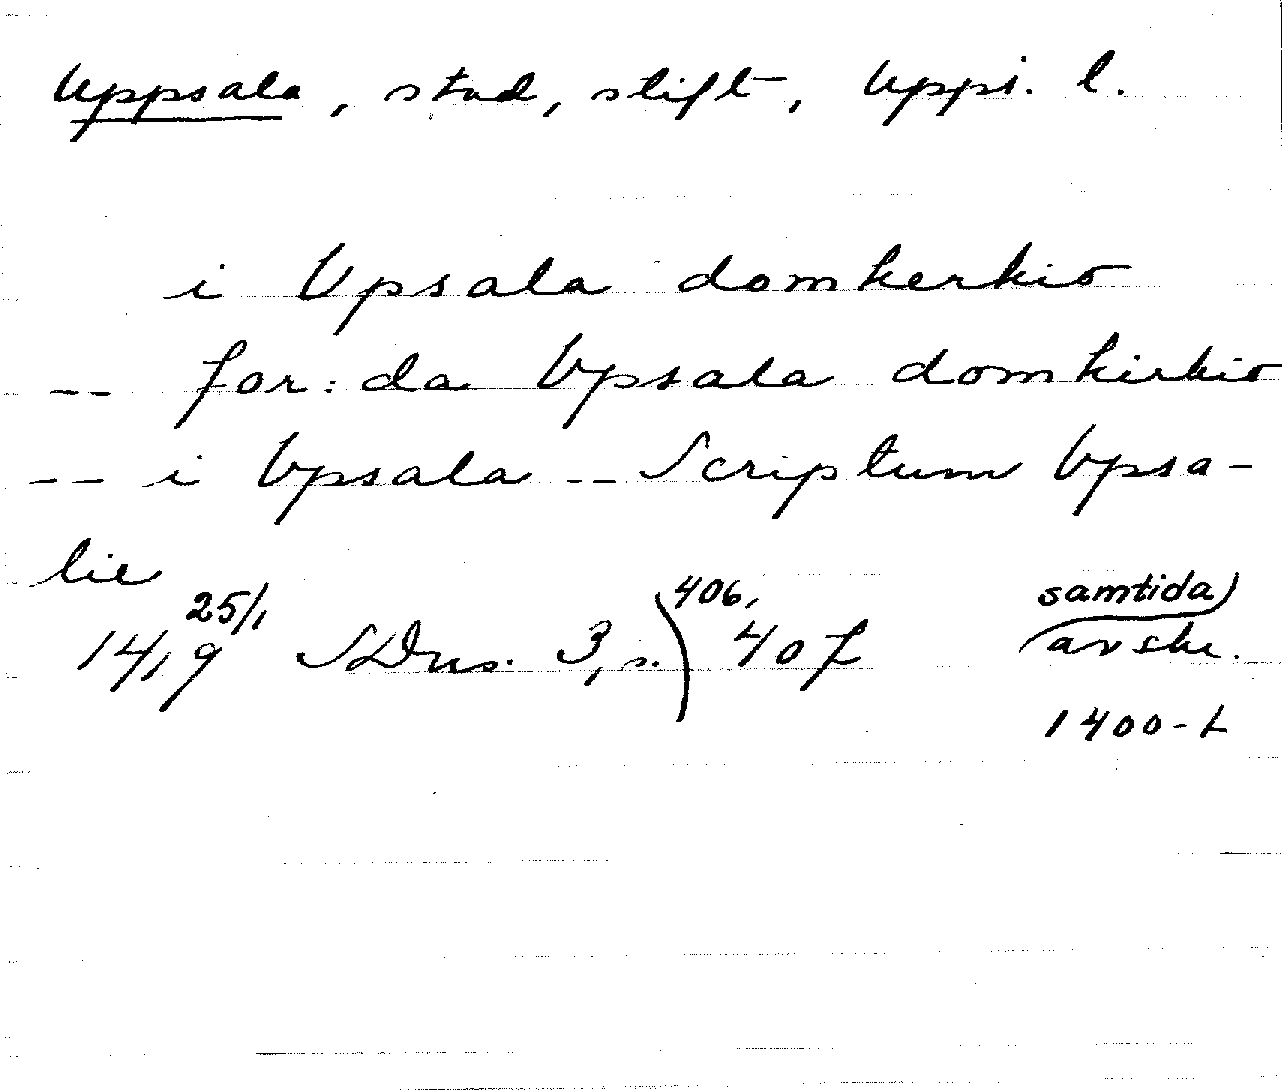 Uppsala, stad, stift, Upps. l.
i Upsala domkerkio
-- for: da Upsala domkirkio
-- i Upsala -- Scriptum Upsa-
lie
1419 25/1 SDns. 3, s. 406, 407 samtida avskr.
1400-t